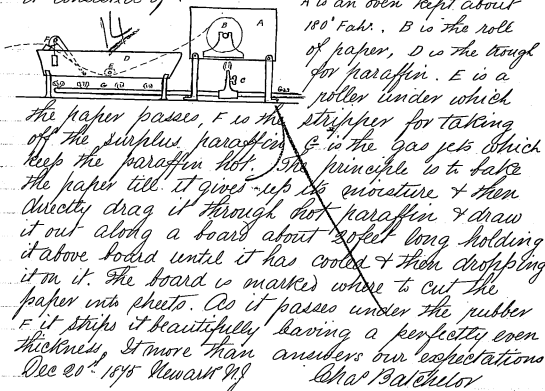 A is an oven kept about
14
180° Fahr. B is the roll
of paper, D is the trough
for paraffin. E is a
roller under which
the paper passes, F is the stripper for taking
off the surplus paraffin G is the gas jets which
keep the paraffin hot. The principle is to bake
the paper till it gives up its moisture & then
directly drag it through hot paraffin & draw
it out along a board about 20 feet long holding
it above board until it has cooled & then dropping
it on it. The board is marked where to cut the
paper into sheets. As it passes under the rubber
F it strips it beautifully leaving a perfectly even
thickness, It more than answers our expectations
Dec 20th 1875 Newark NJ Chas Batchelor
A
B
C
D
E
F
G
Gas